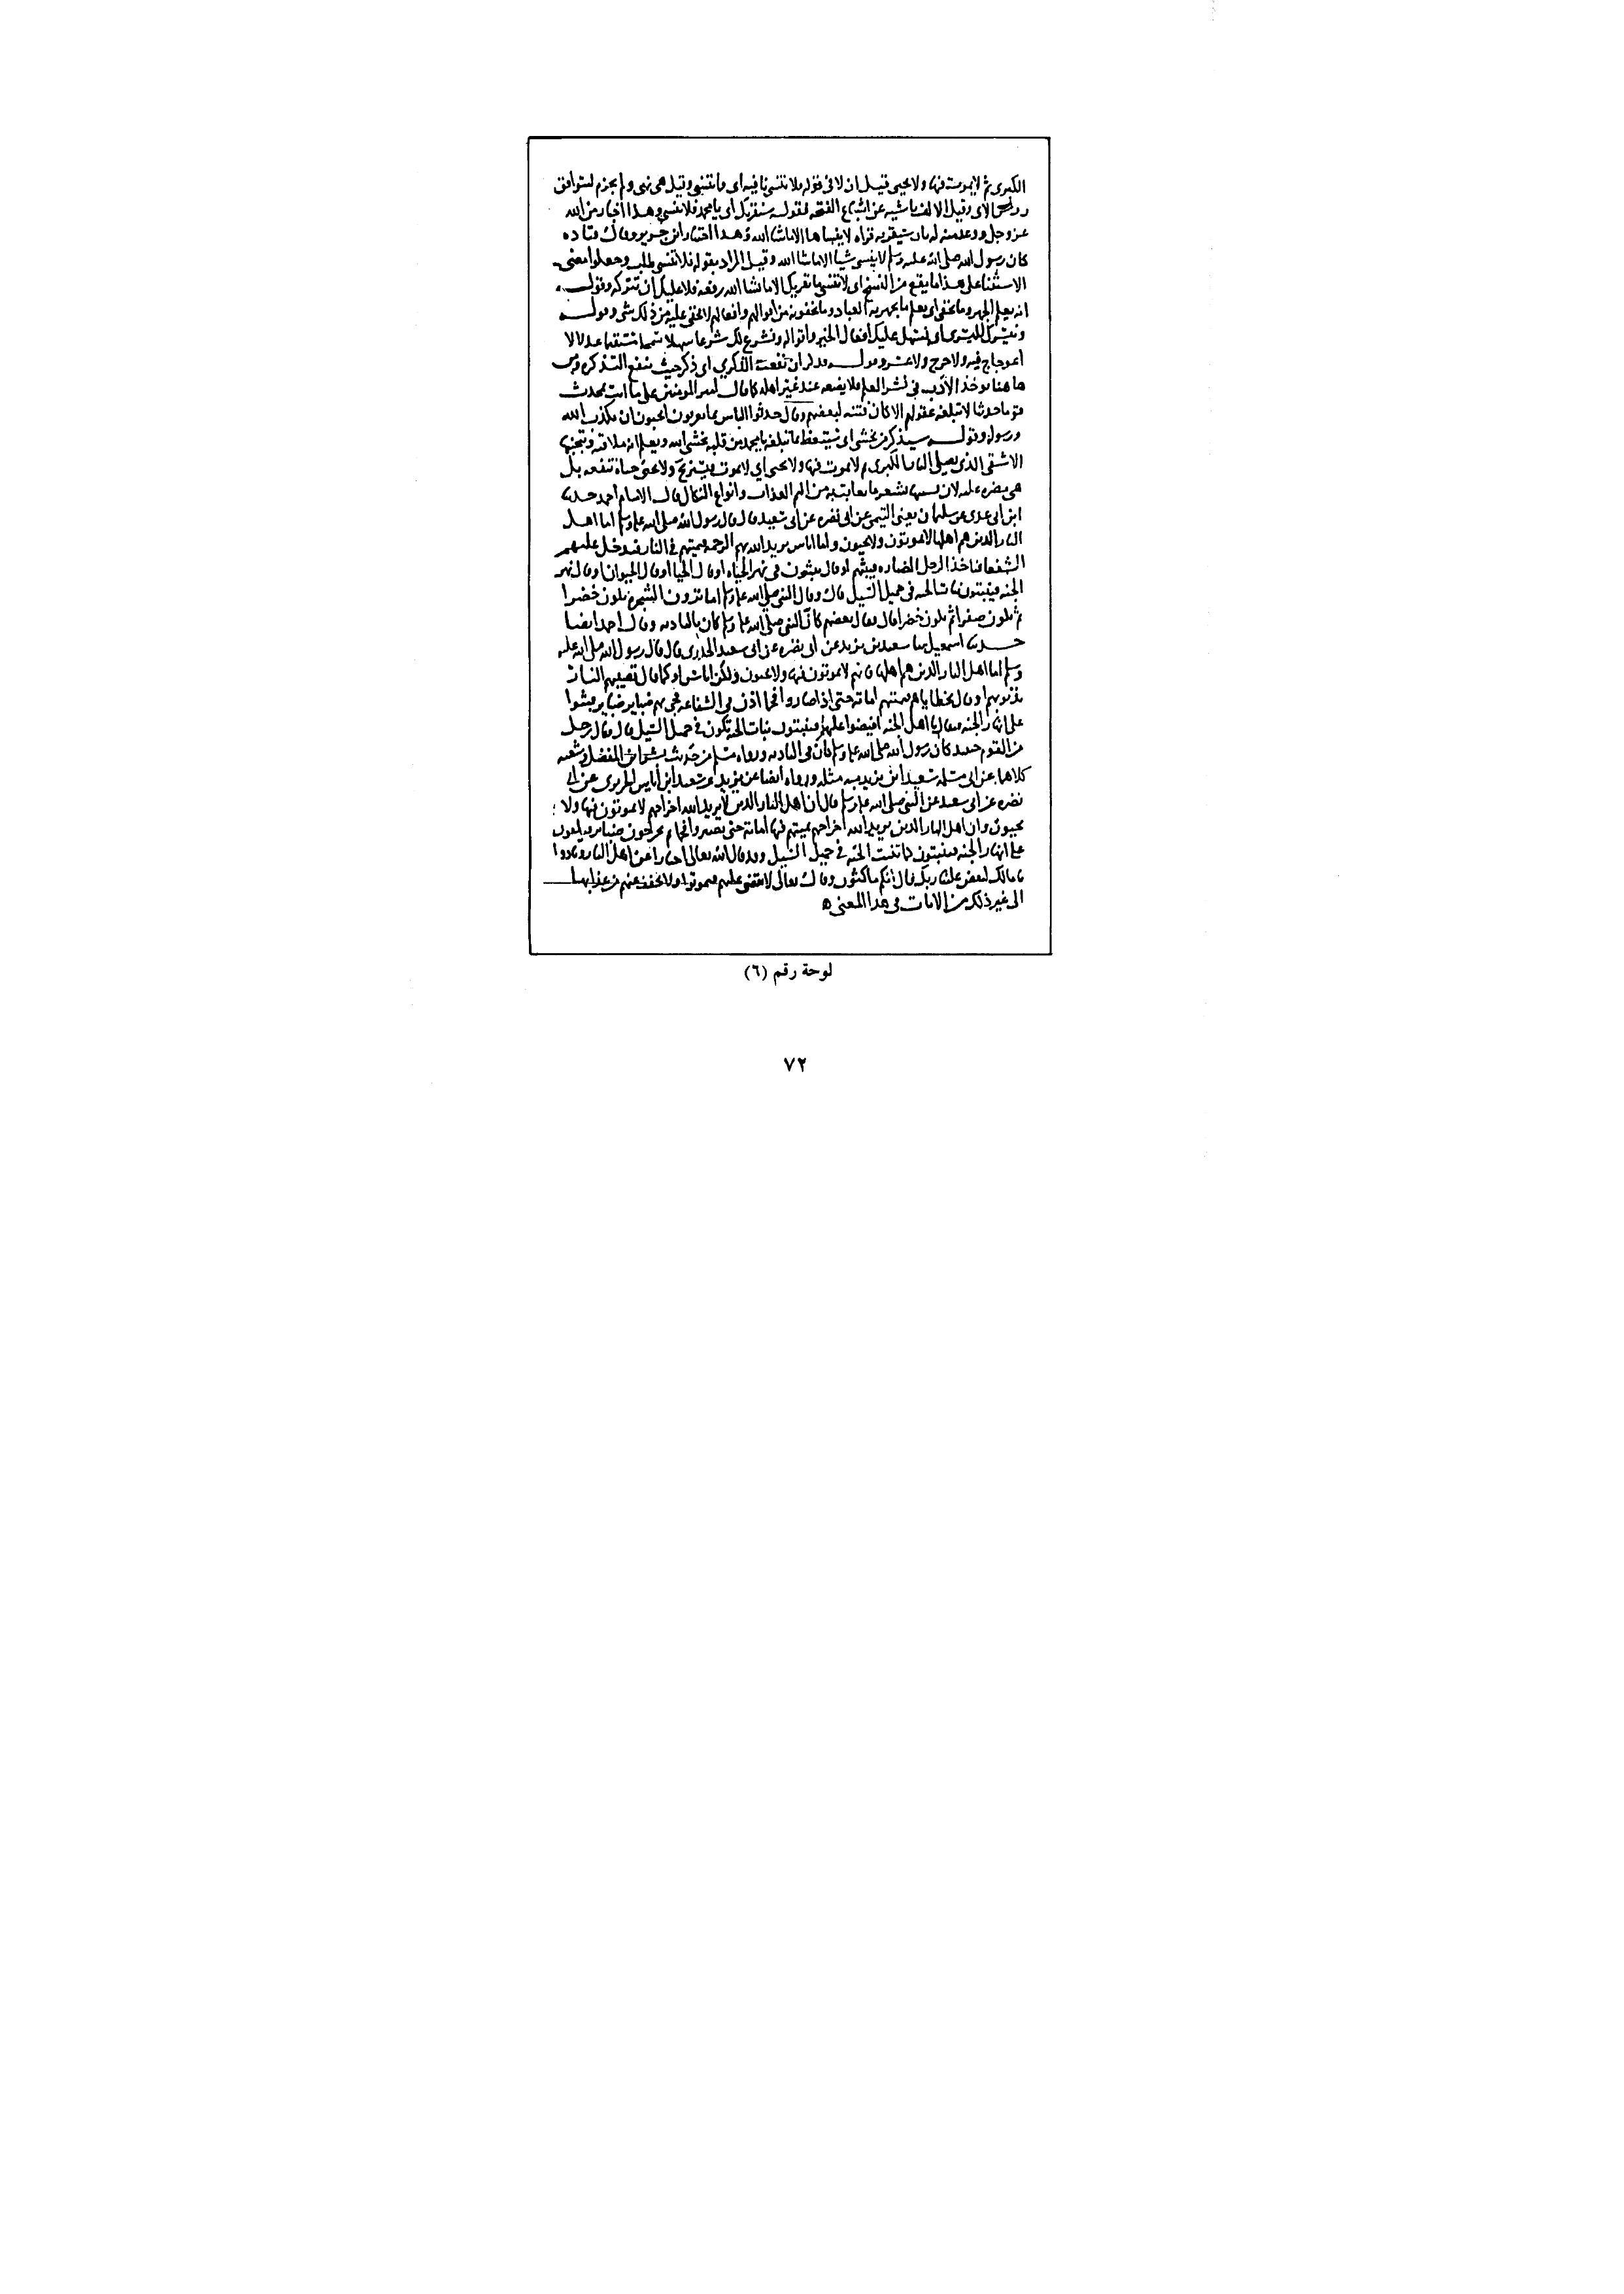 الكبرى ثم لا يموت فيها ولا يحيى قيل ان لا فى قوله فلا تنسى نافيه اى ما تنسى وقيل هى نهى ولم يجزم لتوافق
روس الاى وقيل الالف ناشيه عن اشباع الفتحه فقوله سنقريك اى يا محمد فلا تنسى وهذا اخبار من الله
عز وجل ووعد منه له بان سيقريه قراه لا ينساها الا ما شا الله وهذا اختيار ابن جرير وقال قتاده
كان رسول الله صلى الله عليه وسلم لا ينسى شيا الا ما شا الله وقيل المراد بقوله فلا تنسى طلب وجعلوا معنى
الاستثنا على هذا ما يقع من النسخ اى لا تنسى ما نقريك الا ما شا الله رفعه فلا عليك ان تتركه وقوله
انه يعلم الجهر وما يخفى اى يعلم ما يجهر به العباد وما يخفونه من اقوالهم وافعالهم لا يخفى عليه من ذلك شى وقوله
ونيسرك لليسرى اى نسهل عليك افعال الخير واقواله ونشرع لك شرعا سهلا سمحا مستقيما عدلا لا
اعوجاج فيه ولا حرج ولا عسر وقوله فذكر ان نفعت الذكرى اى ذكر حيث تنفع التذكره ومن
هاهنا يوخذ الادب فى نشر العلم فلا يضعه عند غير اهله كما قال امير المومنين على ما انت بمحدث
قوما حديثا لا تبلغه عقولهم الا كان فتنه لبعضهم وقال حدثوا الناس بما يعرفون اتحبون ان يكذب الله
ورسوله وقوله سيذكر من يخشى اى سيتعظ بما تبلغه يا محمد من قلبه يخشى الله ويعلم انه ملاقيه ويتجنبها
الاشقى الذى يصلى النار الكبرى ثم لا يموت فيها ولا يحيى اى لا يموت فيستريح ولا يحيى حياه تنفعه بل
هى مضره عليه لان بسببها يشعر ما يعاقب به من اليم العذاب وانواع النكال قال الامام احمد حدثنا
ابن ابى عدى عن سليمان يعنى التيمى عن ابى نضره عن ابى سعيد قال قال رسول الله صلى الله عليه وسلم اما اهل
النار الذين هم اهلها لا يموتون ولا يحيون واما اناس يريد الله بهم الرحمه فيميتهم فى النار فيدخل عليهم
الشفعا فياخذ الرجل الضباره فيبثهم او قال يبثون فى نهر الحياه او قال الحيا او قال الحيوان او قال نهر
الجنه فينبتون نبات الحبه فى حميل السيل قال وقال النبى صلى الله عليه وسلم اما ترون الشجره تكون خضرا
ثم تكون صفرا ثم تكون خضرا قال فقال بعضهم كان النبى صلى الله عليه وسلم كان بالباديه وقال احمد ايضا
حدثنا اسمعيل ثنا سعيد بن يزيد عن ابى نضره عن ابى سعيد الخدرى قال قال رسول الله صلى الله عليه
وسلم اما اهل النار الذين هم اهلها فانهم لا يموتون فيها ولا يحيون ولكن اناس او كما قال تصيبهم النار
بذنوبهم او قال بخطاياهم فيميتهم اماته حتى اذا صاروا فحما اذن فى الشفاعه فجى بهم ضباير ضباير فبثوا
على انهار الجنه فيقال يا اهل الجنه افيضوا عليهم فينبتون نبات الحبه تكون فى حميل السيل قال فقال رجل
من القوم حينيذ كان رسول الله صلى الله عليه وسلم كان فى الباديه ورواه مسلم من حديث بشر ابن المفضل وشعبه
كلاهما عن ابى مسلمه سعيد ابن يزيد به مثله ورواه ايضا عن يزيد عن سعيد ابن اياس الجريرى عن ابى
نضره عن ابى سعيد عن النبى صلى الله عليه وسلم قال ان اهل النار الذين لا يريد الله اخراجهم لا يموتون فيها ولا
يحيون وان اهل النار الذين يريد الله اخراجهم يميتهم فيها اماته حتى يصيروا فحما ثم يخرجون ضباير فيلقون
على انهار الجنه فينبتون كما تنبت الحبه فى حميل السيل وقد قال الله تعالى اخبارا عن اهل النار ونادوا
يا مالك ليقض علينا ربك قال انكم ماكثون وقال تعالى لا يقضى عليهم فيموتوا ولا يخفف عنهم من عذابها
الى غير ذلك من الايات فى هذا المعنى
لوحة رقم (٦)
٧٢